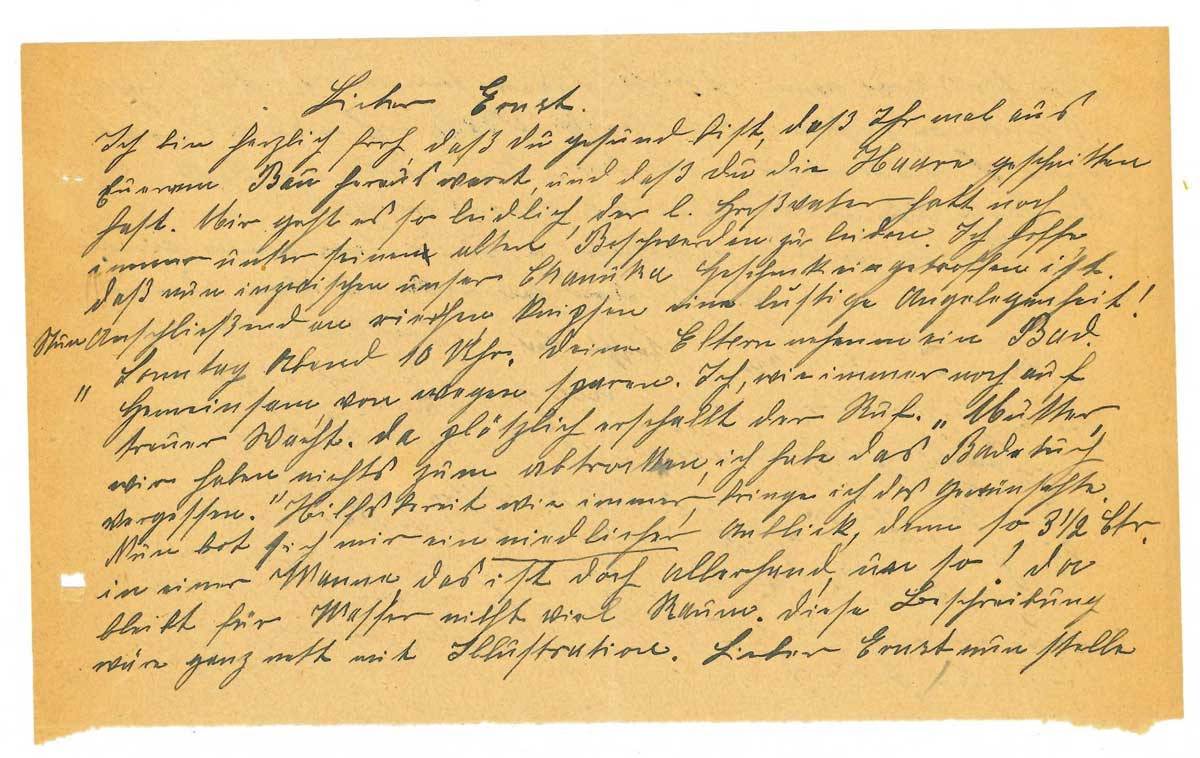 Lieber Ernst.
Ich bin herzlich froh, daß du gesund bist, daß Ihr mal aus
Euerem Bau heraus waret, und daß du die Haare geschnitten
hast. Mir geht es so leidlich, der l. Großvater hatt noch
immer unter seinen alten Beschwerden zu leiden. Ich hoffe,
daß nun inzwischen unser Chanuka Geschenk eingetroffen ist.
Nun Anschließend an eine lustige Angelegenheit!
" Sonntag Abend 10 Uhr. Deine Eltern nehmen ein Bad.
Gemeinsam von wegen sparen. Ich, wie immer noch auf
treuer Wacht. Da plötzlich erschallt der Ruf. „Mutter,
wir haben nichts zum abtrocknen, ich habe das Badetuch
vergessen." Hilfsbereit wie immer, bringe ich das Gewünschte.
Nun bot sich mir ein niedlicher Anblick, denn so 3 1/2 Ctr.
in einer Wanne das ist doch allerhand, un so! da
bleibt für Wasser nicht viel Raum. Diese Beschreibung
wäre ganz nett mit Illustration. Lieber Ernst nun stelle